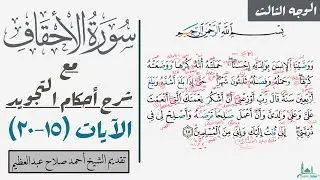 الوجه الثالث
سُورَةُ الأَحْقَافِ
مع
شرح أحكام التجويد
الآيات (١٥-٢٠)
تقديم الشيخ أحمد صلاح عبدالعظيم
بِسْمِ ٱللَّهِ ٱلرَّحْمَٰنِ ٱلرَّحِيمِ
وَوَصَّيْنَا ٱلْإِنسَٰنَ بِوَٰلِدَيْهِ إِحْسَٰنًا حَمَلَتْهُ أُمُّهُۥ كُرْهًا وَوَضَعَتْهُ
كُرْهًا وَحَمْلُهُۥ وَفِصَٰلُهُۥ ثَلَٰثُونَ شَهْرًا حَتَّىٰٓ إِذَا بَلَغَ أَشُدَّهُۥ وَبَلَغَ
أَرْبَعِينَ سَنَةً قَالَ رَبِّ أَوْزِعْنِىٓ أَنْ أَشْكُرَ نِعْمَتَكَ ٱلَّتِىٓ أَنْعَمْتَ
عَلَىَّ وَعَلَىٰ وَٰلِدَىَّ وَأَنْ أَعْمَلَ صَٰلِحًا تَرْضَىٰهُ وَأَصْلِحْ لِى فِى
ذُرِّيَّتِىٓ إِنِّى تُبْتُ إِلَيْكَ وَإِنِّى مِنَ ٱلْمُسْلِمِينَ ١٥